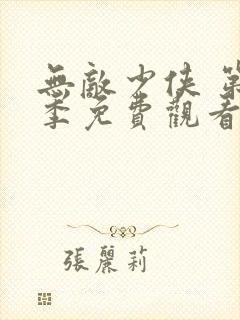 無敵少俠 第
季免費觀看
張麗莉